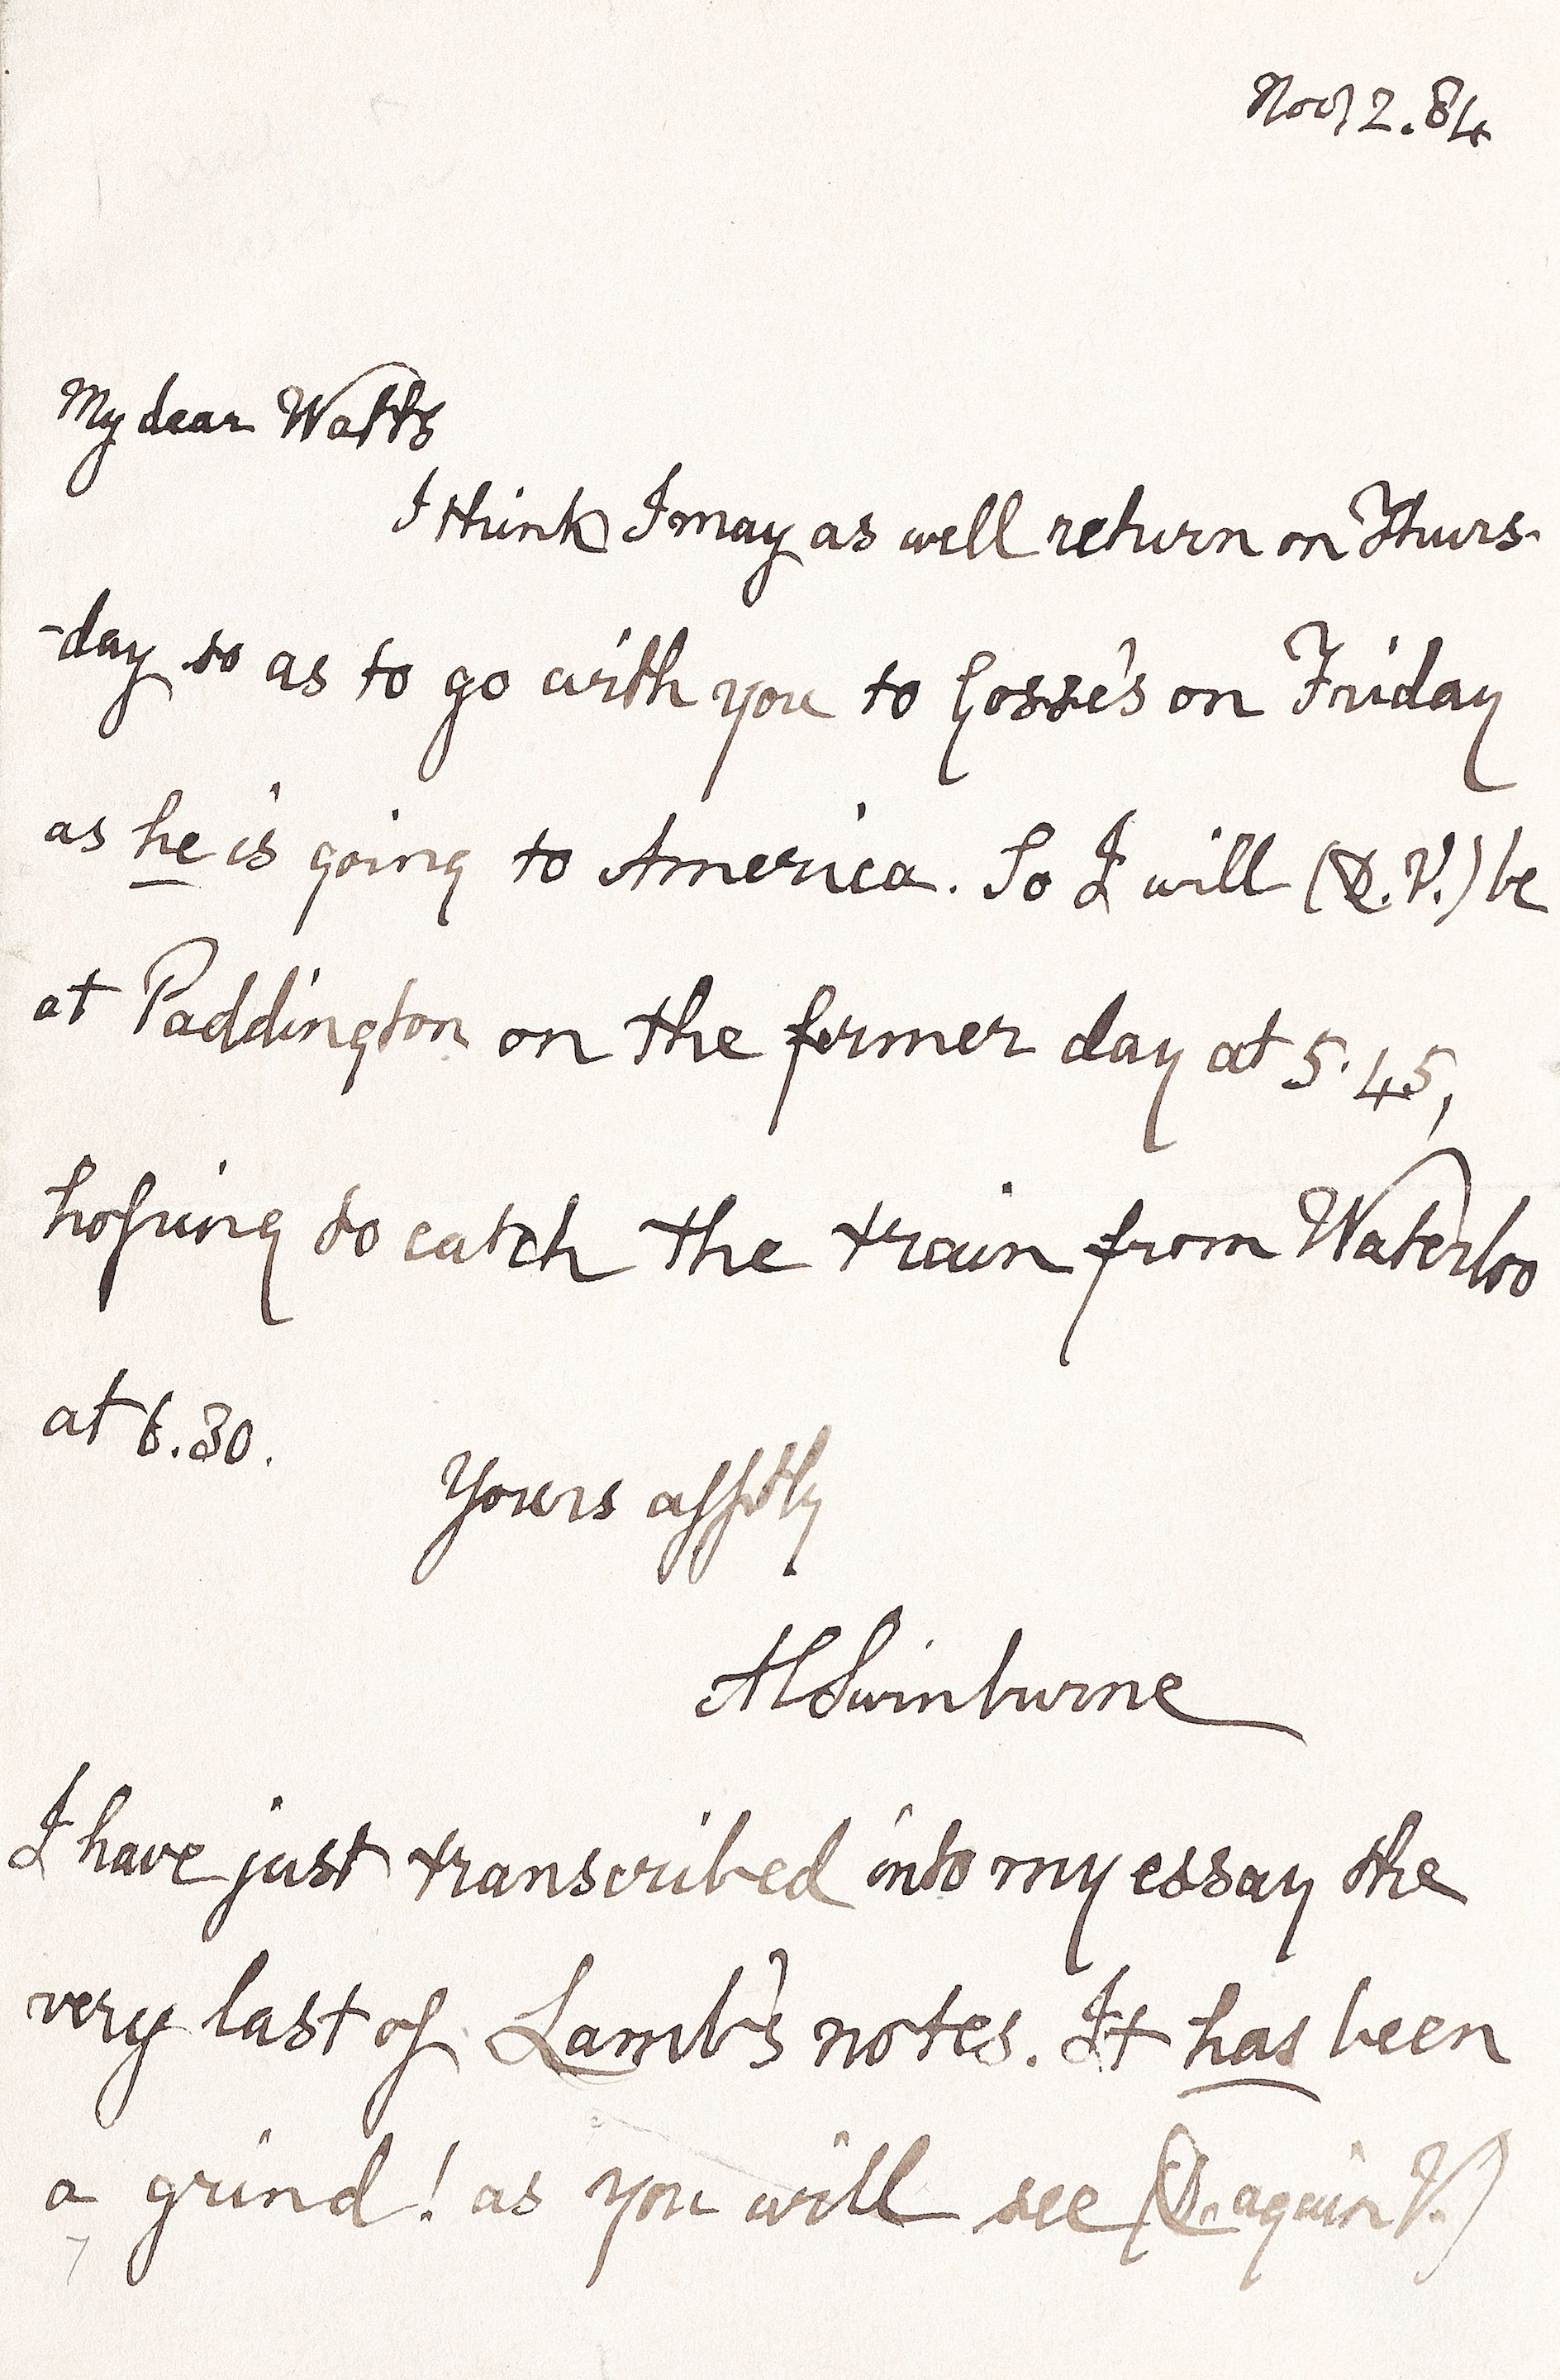 Nov 12. 84
My dear Watts
I think I may as well return on Thurs-
-day so as to go with you to Gosse's on Friday
as he is going to America. So I will (D.V.) be
at Paddington on the former day at 5.45,
hoping to catch the train from Waterloo
at 6.30.
Yours afftly
ACSwinburne
I have just transcribed into my essay the
very last of Lamb's notes. It has been
a grind! as you will see (D. again V.)